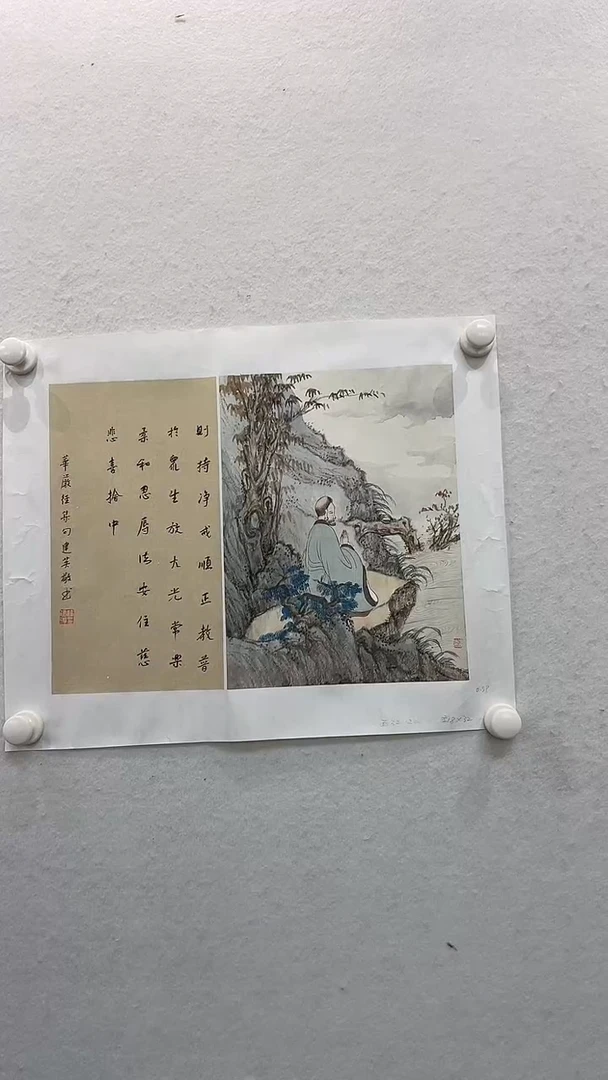 則持淨戒順正教普
於眾生放大光常樂
柔和忍辱法安住慈
悲喜捨中
華嚴經集句建